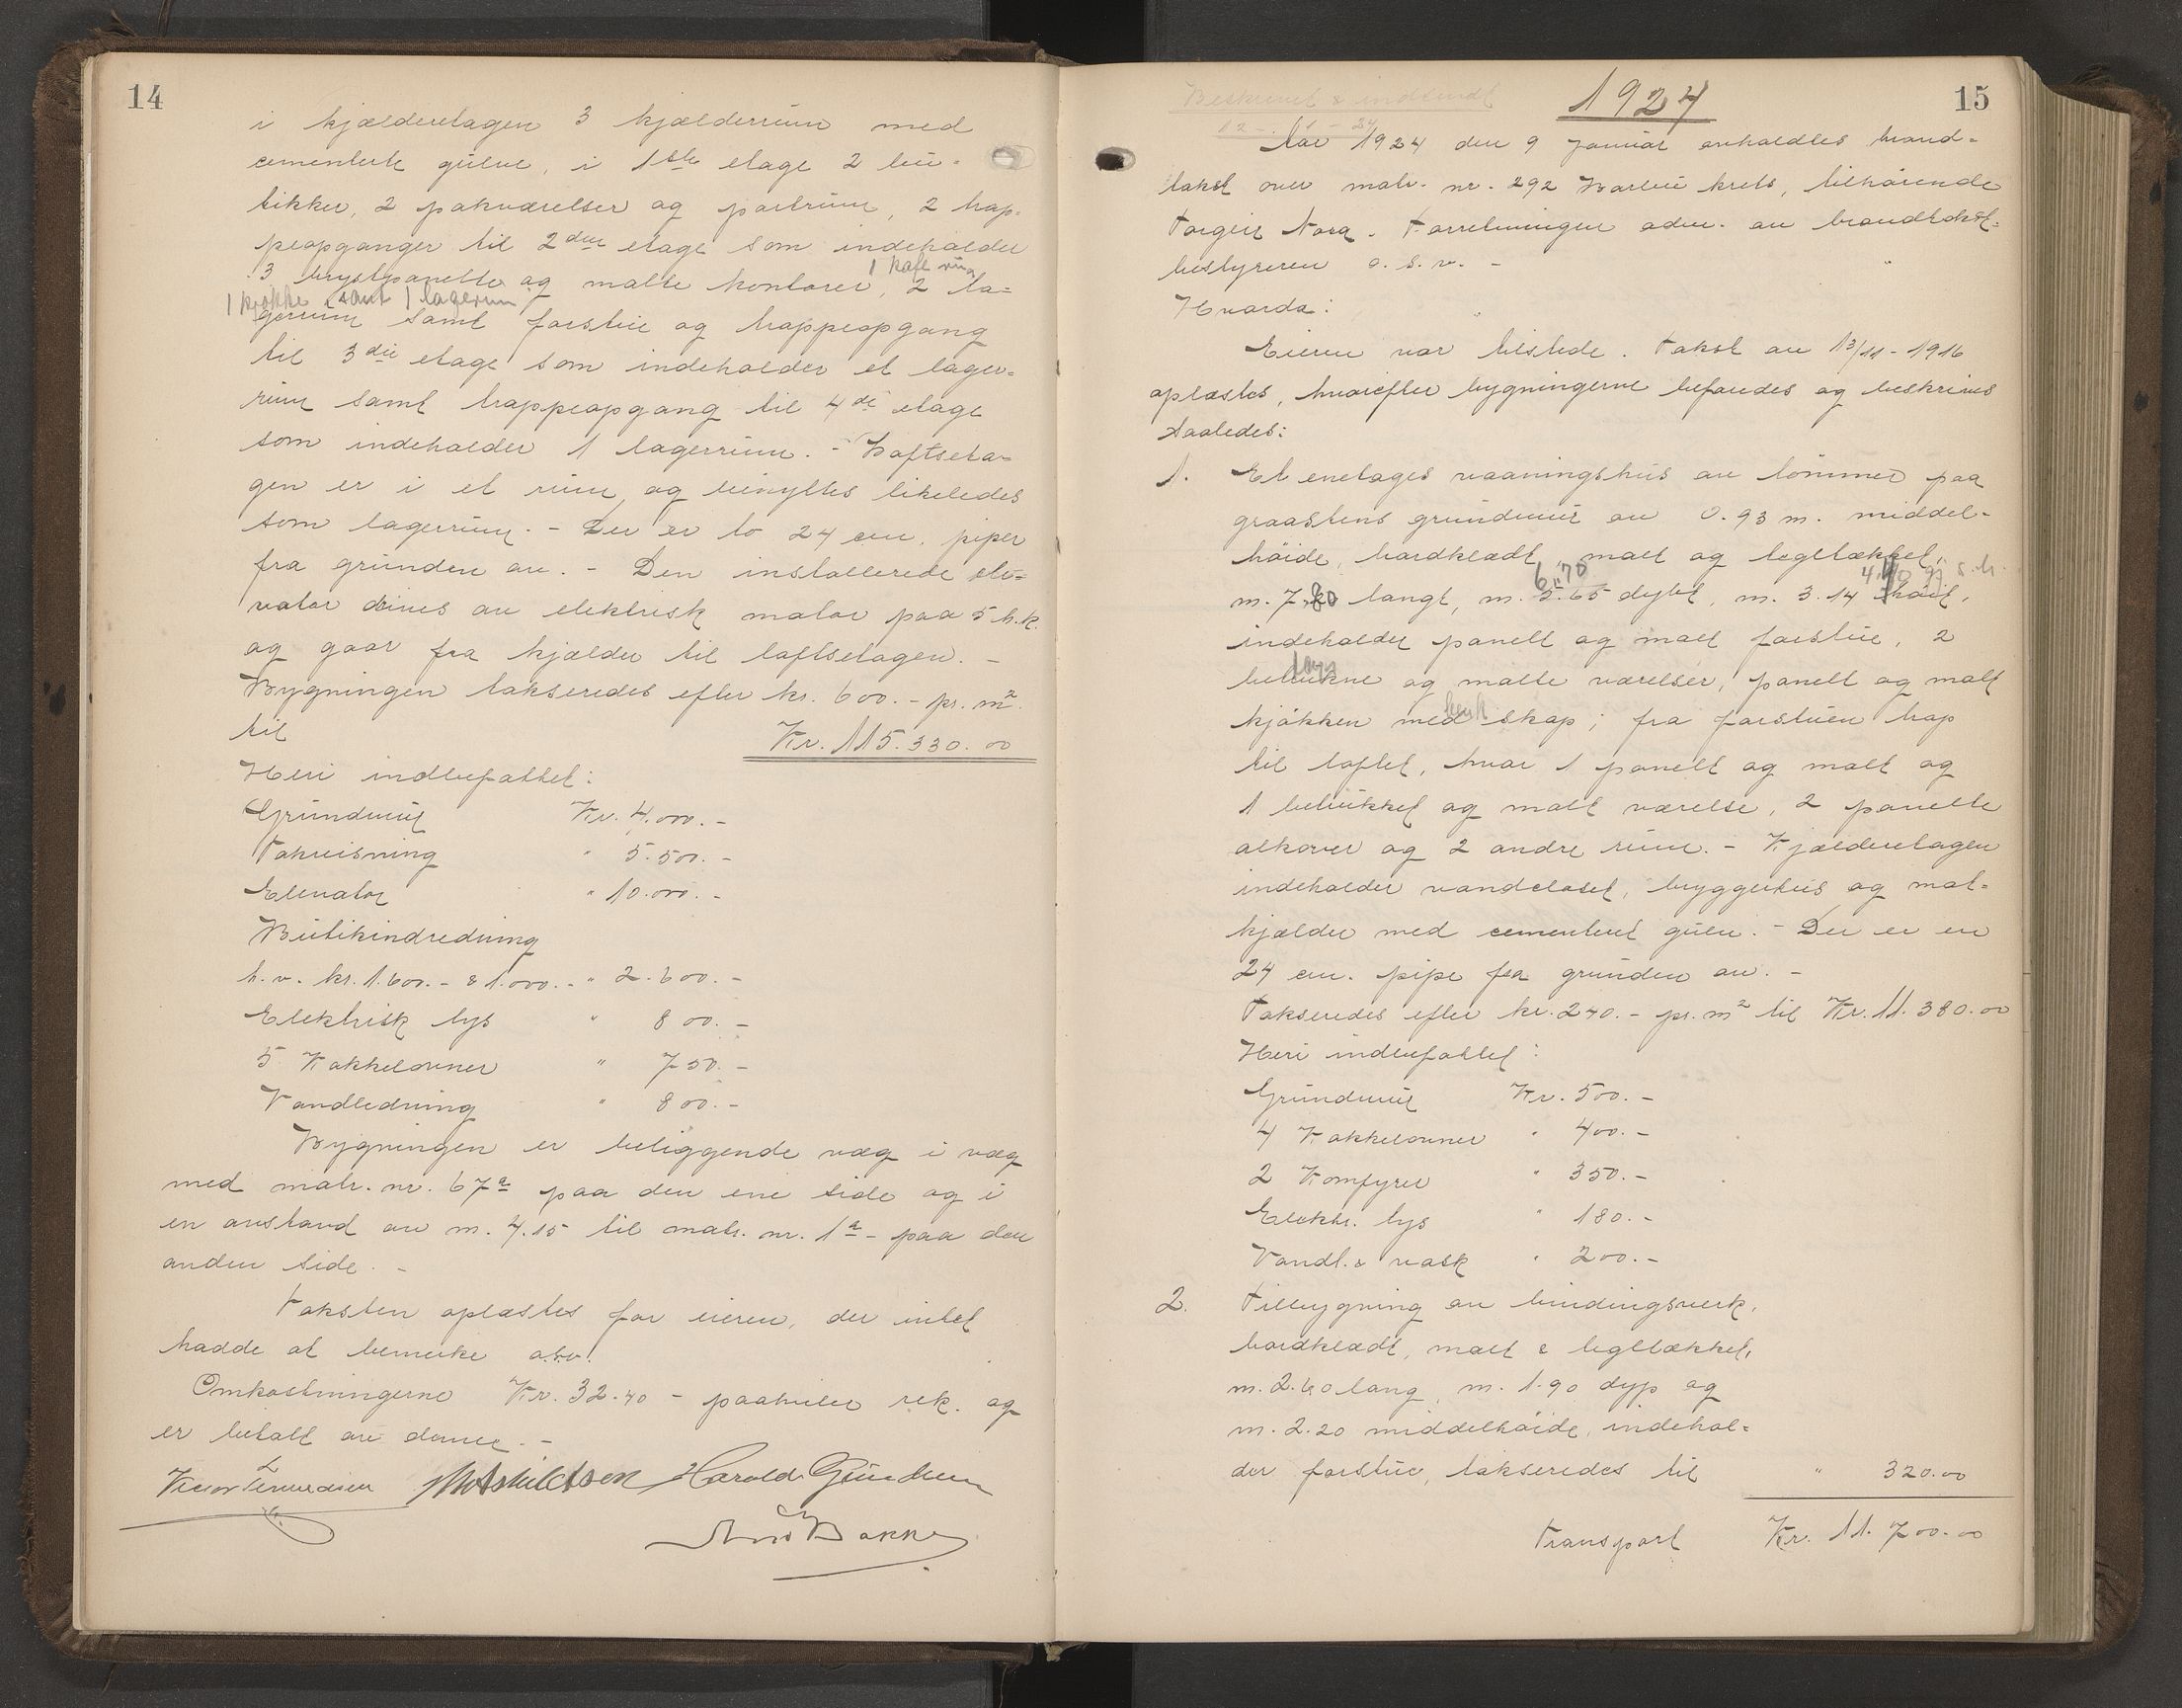 14
i kjælderetagen 3 kjælderrum med
cementerte gulve, i 1ste etage 2 bu-
tikker, 2 pakværelser og portrum, 2 trap-
peopganger til 2den etage som indeholder
1 kafe rum
3 brystpanelte og malte kontorer, 2 la-
1 kjøkke samt 1 lagerrum
gerrum samt forstue og trappeopgang
til 3die etage som indeholder et lager-
rum samt trappeopgang til 4de etage
som indeholder 1 lagerrum. - Loftseta-
gen er i et rum, og benyttes likeledes
som lagerrum. - Der er to 24 cm. piper
fra grunden av. - Den installerede ele-
vator drives av elektrisk motor paa 5 h.k.
og gaar fra kjælder til loftsetagen. -
Bygningen takseredes efter kr. 600.- pr. m².
til Kr. 115.330.00
Heri indbefattet:
Grundmur Kr. 4.000.-
Takreisning " 5.500.-
Elevator " 10.000.-
Butikindredning
h.v. kr. 1.600.- & 1.000.- " 2.600.-
Elektrisk lys " 800.-
5 Kakkelovner " 750.-
Vandledning " 800.-
Bygningen er beliggende væg i væg
med matr. nr. 67a paa den ene side og i
en avstand av m. 4.15 til matr. nr. 1a - paa den
anden side. -
Taksten oplæstes for eieren, der intet
hadde at bemerke o.s.v.
Omkostningerne Kr. 32.40 - paahviler rek. og
er betalt av denne. -
Harald Gundersen
Bakke
15
Beskrevet & indsendt
12 - 1 - 24
1924
Aar 1924 den 9 januar avholdtes brand-
takst over matr. nr. 292 Barbu krets, tilhørende
Torgeir Aora. Forretningen adm. av brandtakst-
bestyreren o.s.v. -
Hvorda:
Eieren var tilstede. Takst av 13/11 - 1916
oplæstes, hvorefter bygningerne befandes og beskrives
saaledes:
1. Et enetages vaaningshus av tømmer paa
graastens grundmur av 0.93 m. middel-
høide, bordklædt, malt og tegltækket,
6.70 4.40 gj. s.h.
m. 7.80 langt, m. 5.65 dypt, m. 3.14 høit,
indeholder panelt og malt forstue, 2
betrukne og malte værelser, panelt og malt
kjøkken med skap; fra forstuen trap
til loftet, hvor 1 panelt og malt og
1 betrukket og malt værelse, 2 panelte
alkover og 2 andre rum. - Kjælderetagen
indeholder vandcloset, bryggerhus og mat-
kjælder med cementeret gulv. - Der er en
24 cm. pipe fra grunden av. -
Takseredes efter kr. 240.- pr. m² til Kr. 11.380.00
Heri indbefattet:
Grundmur Kr. 500.-
4 Kakkelovner " 400.-
2 Komfyrer " 350.-
Elektr. lys " 180.-
Vandl. & vask " 200.-
2. Tilbygning av bindingsverk,
bordklædt, malt & tegltækket,
m. 2.60 lang, m. 1.90 dyp og
m. 2.20 middelhøide, indehol-
der forstue, takseredes til " 320.00
Transport Kr. 11.700.00